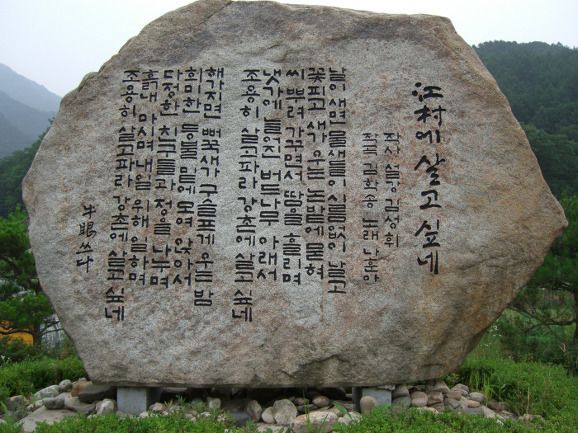 江村에 살고 싶네
작사 설강 김성휘
작곡 김학송 노래 나훈아
날이 새면 물새들이 시름없이 날고
꽃피고 새 우는 논밭에 묻혀
씨 뿌려 가꾸면서 땀을 흘리며
냇가에 늘진 버드나무 아래서
조용히 살고파라 강촌에 살고 싶네
해가 지면 뻐꾹새가 구슬프게 우는 밤
희미한 등불 밑에 모여 앉아서
다정한 친구들과 정을 나누며
흙내 마시며 내일 위해 일하며
조용히 살고파라 강촌에 살고 싶네
牛眠 쓰다